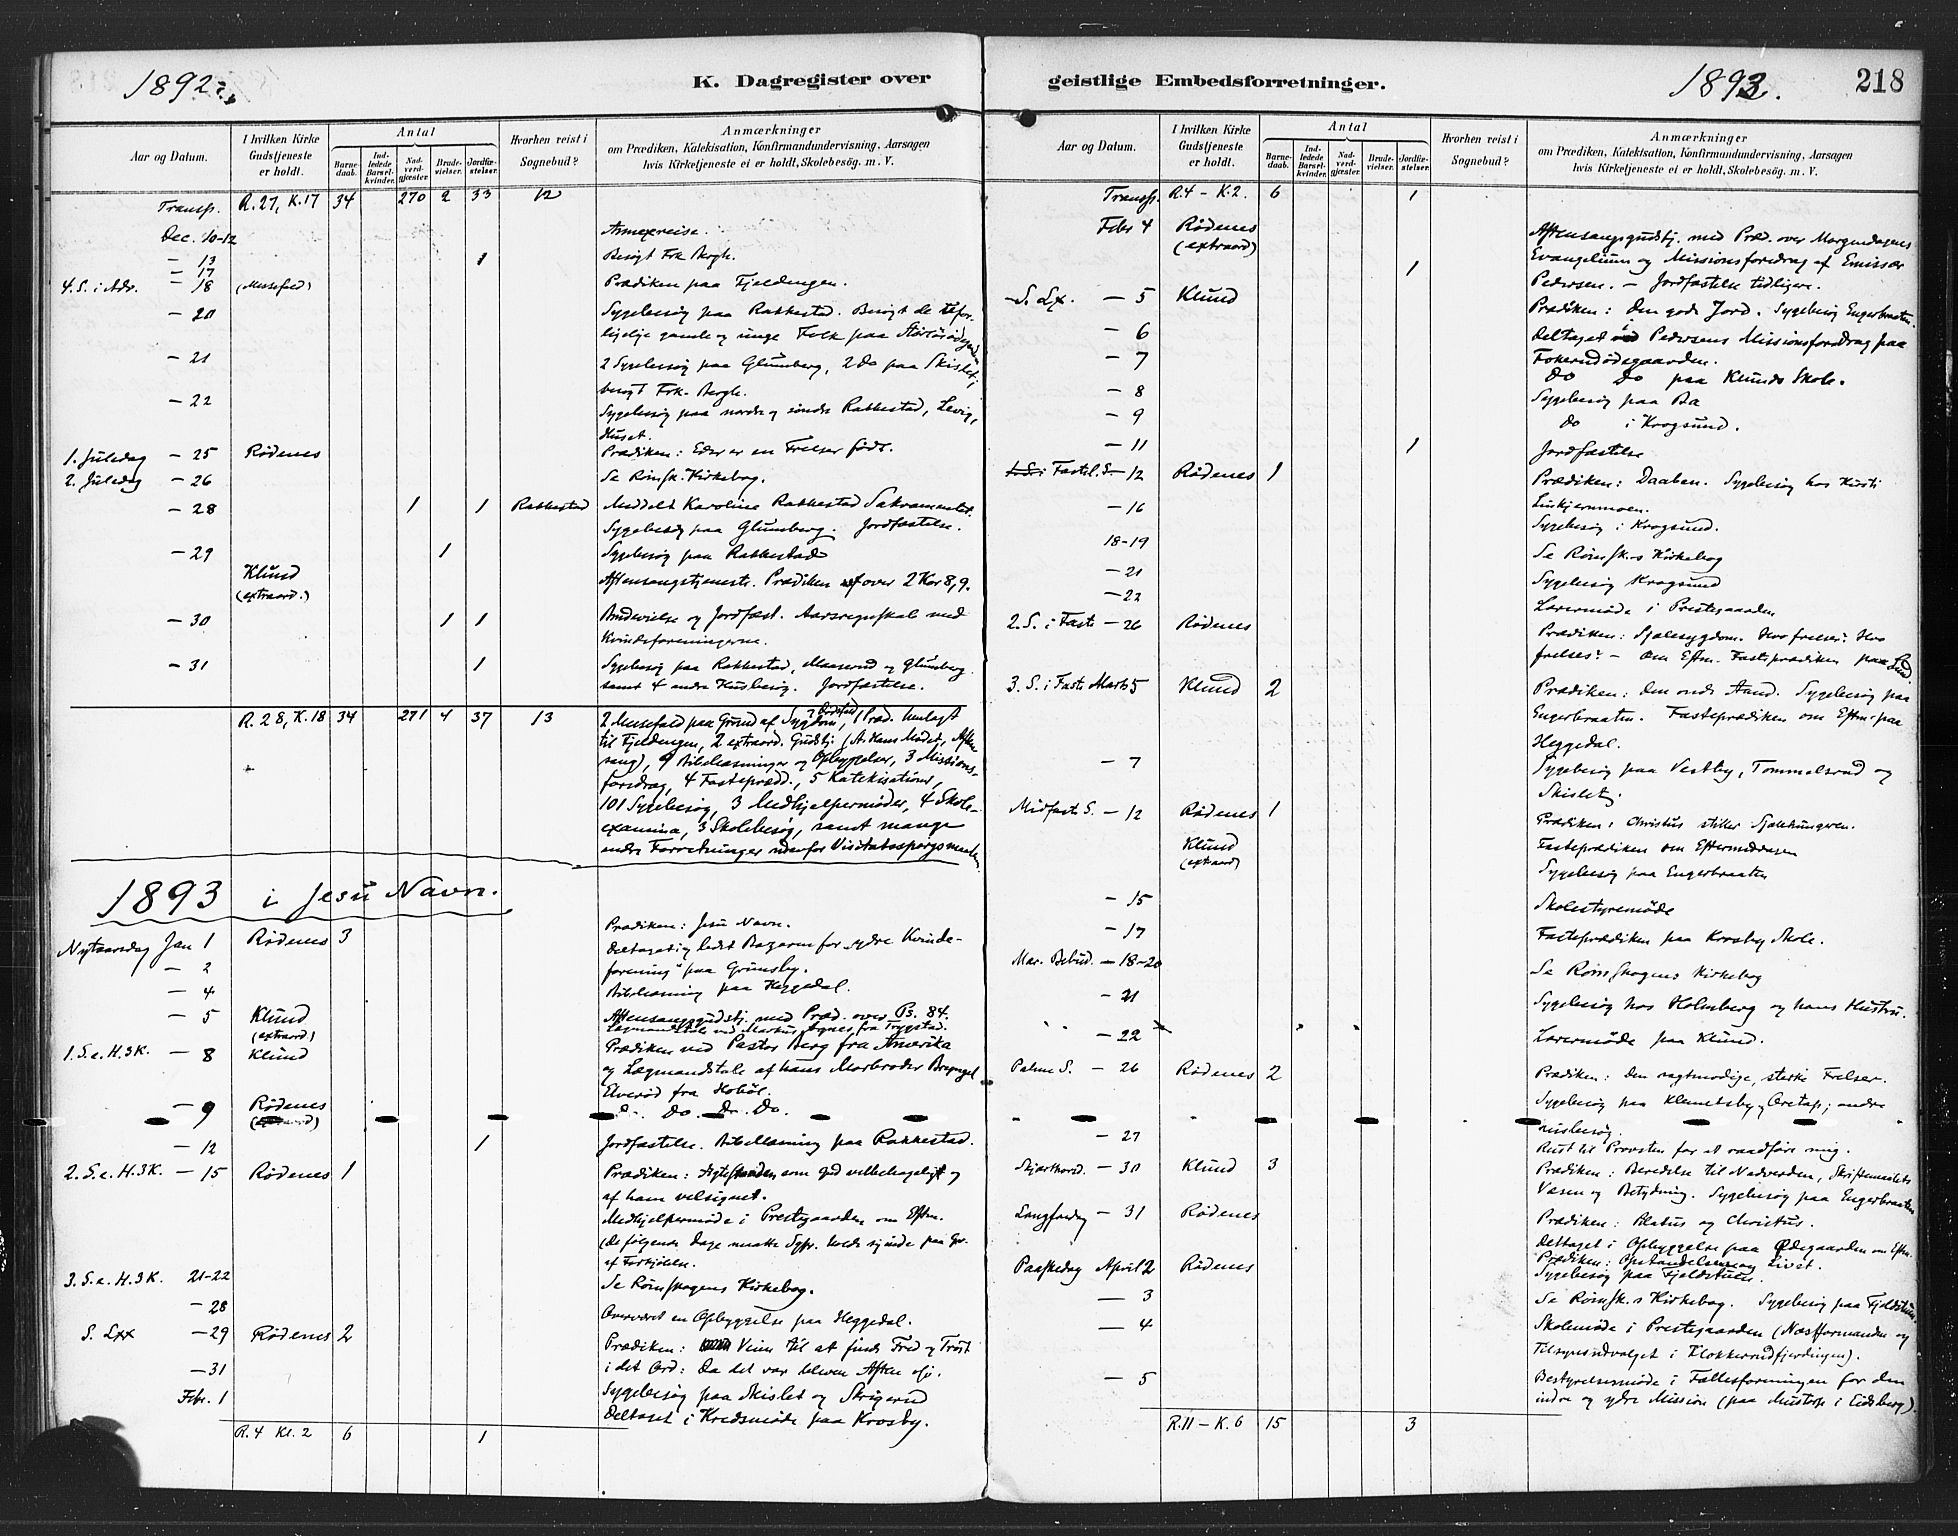 1892
K. Dagregister over
geistlige Embedsforretninger.
1893.
218
Aar og Datum.
I hvilken Kirke Gudstjeneste er holdt.
Antal
Barnedaab.
Indledede Barselkvinder.
Nadverdgjæster.
Brudevielser.
Jordfæstelser.
Hvorhen reist i Sognebud?
Anmærkninger
om Prædiken, Katekisation, Konfirmandundervisning, Aarsagen
hvis Kirketjeneste ei er holdt, Skolebesøg. m. V.
Transp. R. 27, K. 17 34 270 2 33 12
Dec. 10-12 Annexreise.
- 13 1 Besøgt Frk. Bergh.
- 17
4. S. i Adv. - 18 (Messefald) Prædiken paa Fjeldengen.
- 20 Sygebesøg paa Rakkestad. Besøgt de
gamle og unge Folk paa
- 21 2 Sygebesøg paa Glumberg, 2 Do paa Skislet,
besøgt Frk. Bergh.
- 22 Sygebesøg paa nordre og søndre Rakkestad, Levig,
Huset.
1. Juledag - 25 Rødenes Prædiken: Eder er en Frelser født.
2. Juledag - 26 Se Rømsk. Kirkebog.
- 28 1 1 Rakkestad Meddelt Karoline Rakkestad Sakramentet.
Sygebesøg paa Glumberg. Jordfæstelse.
- 29 1 Sygebesøg paa Rakkestad
Klund (extraord.) Aftensangstjeneste. Prædiken over 2 Kor 8,9.
- 30 1 1 Brudevielse og Jordfæst. Aarsregnskab med
Kvindeforeningerne.
- 31 1 Sygebesøg paa Rakkestad, Maaserud og Glumberg
samt 4 andre Husbesøg. Jordfæstelse.
R. 28, K. 18 34 271 4 37 13 2 Messefald paa Grund af Sygdom, 1 Præd. henlagt
til Fjeldengen, 2 extraord. Gudstj. (St. Hans Mødet, Aften
sang), 9 Bibellæsninger og Opbyggelser, 3 Missions-
foredrag, 4 Fasteprædd., 5 Katekisationer,
101 Sygebesøg, 3 Medhjelpermøder, 4 Skole-
examina, 3 Skolebesøg, samt mange
andre Forretninger udenfor
1893 i Jesu Navn.
Nytaarsdag Jan 1 Rødenes 3 Prædiken: Jesu Navn.
- 2 Deltaget i og ledet Bazaren for "ydre Kvinde-
forening" paa Grimsby.
- 4 Bibellæsning paa Heggedal.
- 5 Klund (extraord) Aftensanggudstj. med Præd. over B. 84.
Lægmandstale ved Markus Agnes fra Trygstad.
1. S. e. H. 3 K. - 8 Klund Prædiken ved Pastor Berg fra Amerika
og Lægmandstale af hans Morbroder
Elverød fra Hobøl.
- 9 Rødenes (extraord) Do. Do. Do.
- 12 1 Jordfæstelse. Bibellæsning paa Rakkestad.
2. S. e. H. 3 K. - 15 Rødenes 1 Prædiken: Ægtestanden som Gud velbehagelig og
af ham velsignet.
Medhjelpermøde i Prestegaarden om Eftm.
(De følgende Dage maatte Sgpr. holde sig inde paa Gr.
af Forkjølelse.
3. S. e. H. 3 K. 21-22 Se Rømskogens Kirkebog.
- 28 Overværet en Opbyggelse paa Heggedal.
S. Lxx - 29 Rødenes 2 Prædiken: Veien til at finde Fred og Trøst
i det Ord: Da det var bleven Aften osv.
- 31 Sygebesøg paa Skislet og Skrigerud
Febr. 1 Deltaget i Kredsmøde paa Krosby.
R. 4 Kl. 2 6 1
Aar og Datum.
I hvilken Kirke Gudstjeneste er holdt.
Antal
Barnedaab.
Indledede Barselkvinder.
Nadverdgjæster.
Brudevielser.
Jordfæstelser.
Hvorhen reist i Sognebud?
Anmærkninger
om Prædiken, Katekisation, Konfirmandundervisning, Aarsagen
hvis Kirketjeneste ei er holdt, Skolebesøg. m. V.
Transp. R. 4 - K. 2. 6 1
Febr 4 Rødenes (extraord) Aftensangsgudstj. med Præd. over Morgendagens
1 Evangelium og Missionsforedrag af Emissær
Pedersen. - Jordfæstelse tidligere.
S. Lx. - 5 Klund Prædiken: Den gode Jord. Sygebesøg Engerbraaten.
- 6 Deltaget ved Pedersens Missionsforedrag paa
Fokerudødegaarden.
- 7 Do Do paa Klunds Skole.
- 8 Sygebesøg paa Bø
- 9 Do i Krogsund.
- 11 1 Jordfæstelse
Fastel. S. - 12 Rødenes 1 Prædiken: Daaben. Sygebesøg hos Kirsti
- 16 Sygebesøg i Krogsund.
18-19 Se Rømsk.s Kirkebog
- 21 Sygebesøg Krogsund
- 22 Lærermøde i Prestegaarden
2. S. i Faste - 26 Rødenes Prædiken: Sjælesygdom. Hvo frelser? Hvo
frelses? - Om Eftm. Fasteprædiken paa Lund.
3. S. i Faste Marts 5 Klund 2 Prædiken: Den onde Aand. Sygebesøg paa
Engerbraaten. Fasteprædiken om Eftm. paa
Heggedal.
- 7 Sygebesøg paa Vestby, Tommelsrud og
Skislet.
Midfaste S. - 12 Rødenes 1 Prædiken: Christus stiller Sjælehungeren.
Klund (extraord) Fasteprædiken om Eftermiddagen
Sygebesøg paa Engerbraaten
- 15 Skolestyremøde
- 17 Fasteprædiken paa Krosby Skole.
Mar. Bebud. - 18-20 Se Rømskogens Kirkebog
- 21 Sygebesøg hos Holmberg og hans Hustru.
- 22 Lærermøde paa Klund.
Palme S. - 26 Rødenes 2 Prædiken: Den sagtmodige, sterke Frelser.
Sygebesøg paa Klemetsby, Øretap; andre
Husbesøg.
- 27 Reist til Provsten for at raadføre mig.
Skjærthorsd. - 30 Klund 3 Prædiken: Beredelse til Nadverden, Skriftemaalets
Væsen og Betydning. Sygebesøg paa Engerbraaten
Langfredag - 31 Rødenes Prædiken: Pilatus og Christus.
Deltaget i Opbyggelse paa Ødegaarden om Eftm.
Paaskedag April 2 Rødenes Prædiken: Opstandelsen og Livet.
Sygebesøg paa Fjeldstuen.
- 3 Se Rømsk.s Kirkebog. Sygebesøg paa Fjeldstuen
- 4 Skolemøde i Prestegaarden (Næstformanden og
Tilsynsudvalget i Klokkerudfjerdingen).
- 5 Bestyrelsesmøde i Fællesforeningen for den
indre og ydre Mission (paa Mustorp i Eidsberg).
R. 11 - K. 6 15 3